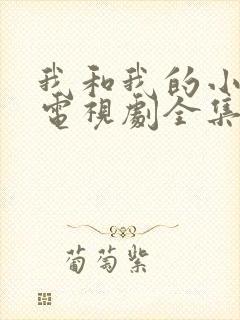 我和我的小
電視劇全集
葡萄紫